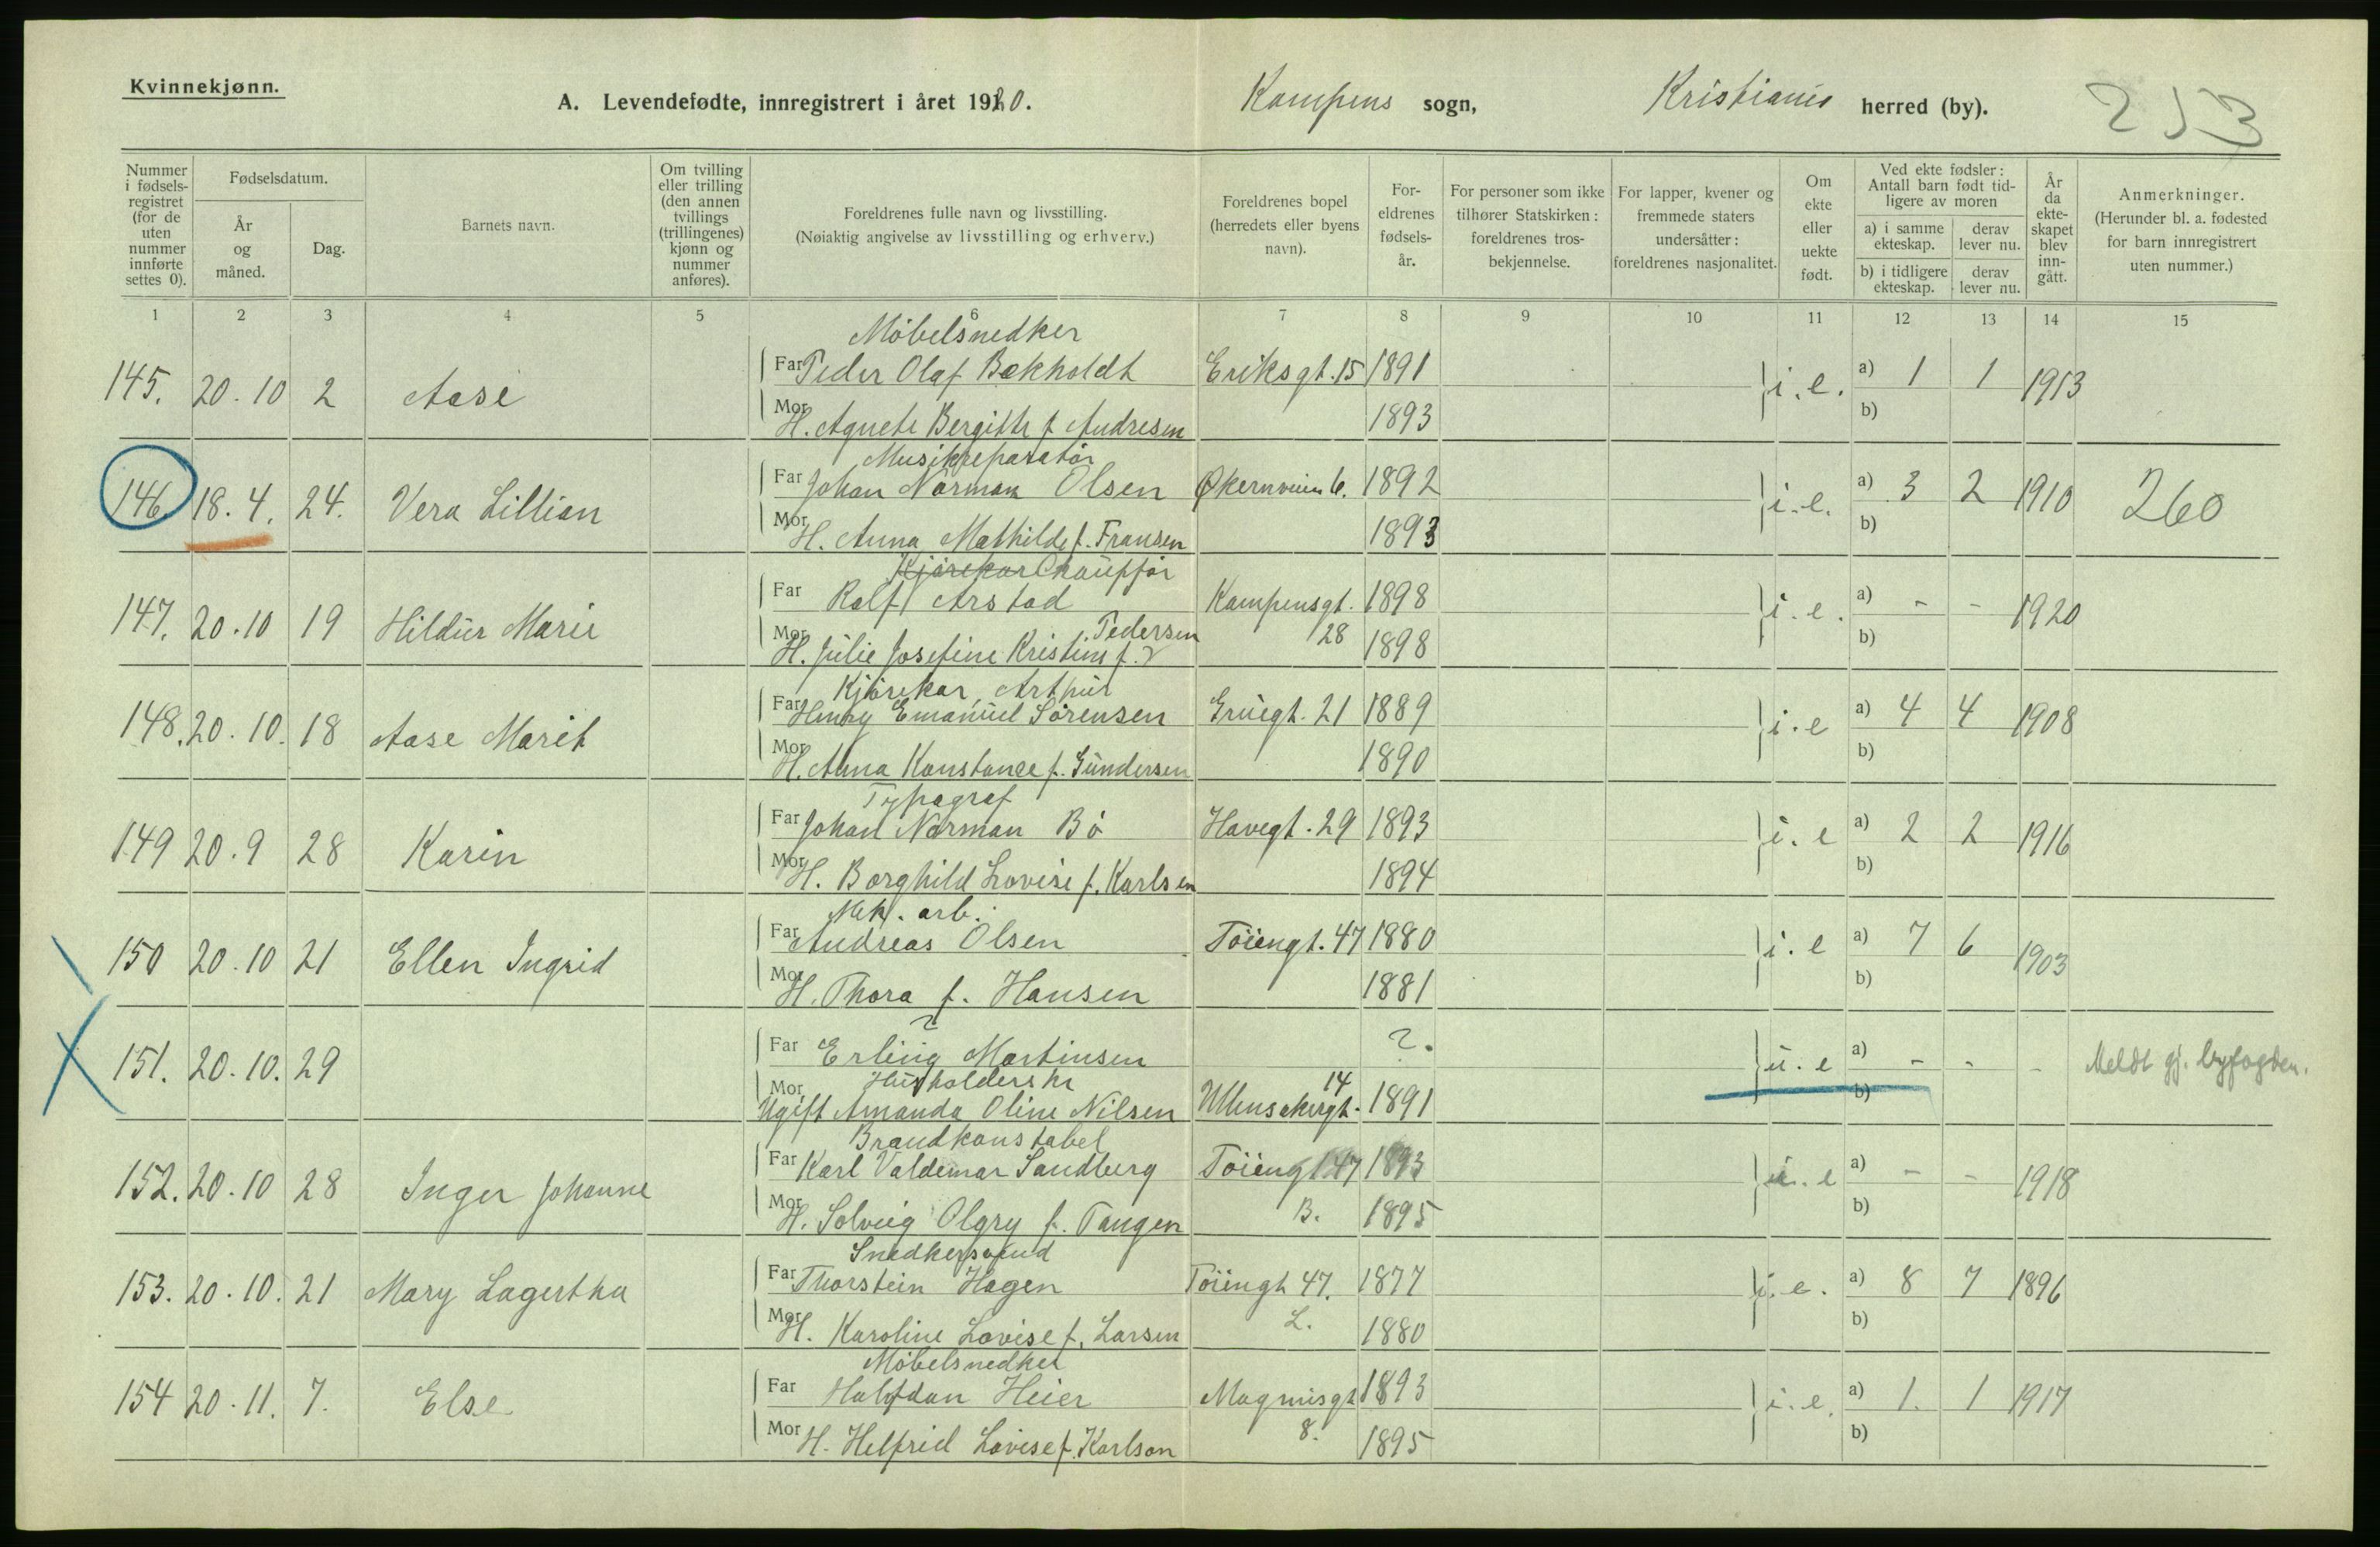 Kvinnekjønn.
A. Levendefødte, innregistrert i året 1920. Kampens sogn, Kristiania herred (by). 253
Nummer i fødsels-registret (for de uten nummer innførte settes 0).
Fødselsdatum.
År og måned.
Dag.
Barnets navn.
Om tvilling eller trilling (den annen tvillings (trillingenes) kjønn og nummer anføres).
Foreldrenes fulle navn og livsstilling.
(Nøiaktig angivelse av livsstilling og erhverv.)
Foreldrenes bopel (herredets eller byens navn).
For-eldrenes fødsels-år.
For personer som ikke tilhører Statskirken: foreldrenes tros-bekjennelse.
For lapper, kvener og fremmede staters undersåtter: foreldrenes nasjonalitet.
Om ekte eller uekte født.
Ved ekte fødsler: Antall barn født tid-ligere av moren
a) i samme ekteskap. derav lever nu.
b) i tidligere ekteskap. derav lever nu.
År da ekte-skapet blev inn-gått.
Anmerkninger.
(Herunder bl. a. fødested for barn innregistrert uten nummer.)
1 2 3 4 5 6 7 8 9 10 11 12 13 14 15
Møbelsnedker
145. 20.10 2 Aase Far Peder Olaf Bækholdt Eriksgt. 15 1891 i.e. a) 1 1 1913
Mor H. Agnete Bergitte f Andresen 1893 b)
Musikreparatør
146. 18.4. 24. Vera Lillian Far Johan Norman Olsen Økernveien 6. 1892 i.e. a) 3 2 1910 260
Mor H. Anna Mathilde f. Fransen 1893 b)
Kjørekar Chauffør
147. 20.10 19 Hildur Marie Far Rolf Arstad Kampensgt. 1898 i.e. a) - - 1920
Pedersen
Mor H. Julie Josefine Kristine f. 28 1898 b)
Kjørekar, Arthur
148. 20.10. 18 Aase Marit Far Henry Emanuel Sørensen Gruegt. 21 1889 i.e a) 4 4 1908
Mor H. Anna Konstance f. Gundersen 1890 b)
Typograf
149 20.9 28 Karin Far Johan Norman Bø Havegt. 29 1893 i.e a) 2 2 1916
Mor H. Borghild Lovise f. Karlsen 1894 b)
Mek. arb.
150 20.10 21 Ellen Ingrid Far Andreas Olsen Tøiengt. 47 1880 i.e a) 7 6 1903
Mor H. Thora f. Hansen 1881 b)
?
151. 20.10. 29 Far Erling Martinsen ?. u.e a) - - - Meldt gj. byfogden.
Husholderske 14
Mor Ugift Amanda Oline Nilsen Ullensakergt. 1891 b)
Brandkonstabel
152. 20.10 28 Inger Johanne Far Karl Valdemar Sandberg Tøiengt 47 1893 i.e a) - - 1918
Mor H. Solveig Olgry f. Tangen B. 1895 b)
Snedkersvend
153. 20.10. 21 Mary Lagertha Far Thorstein Hagen Tøiengt 47. 1877 i.e. a) 8 7 1896
Mor H. Karoline Lovise f. Larsen L. 1880 b)
Møbelsnedker
154 20.11. 7. Else Far Halfdan Heier Magnusgt 1893 i.e. a) 1. 1 1917
Mor H. Helfrid Lovise f. Karlson 8. 1895 b)